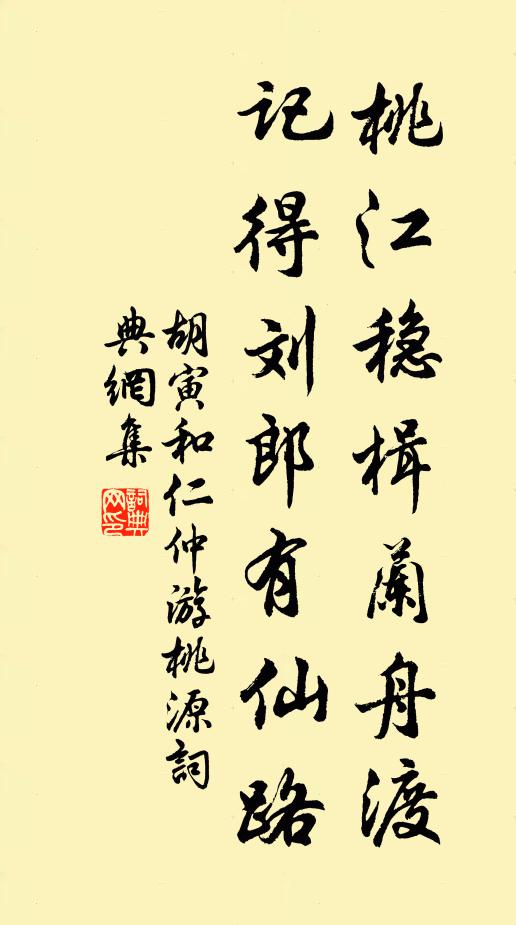 桃江稳楫蘭舟渡
记得刘郎有仙路
胡寅和仁仲游桃源詞
典網集
詞典
网印